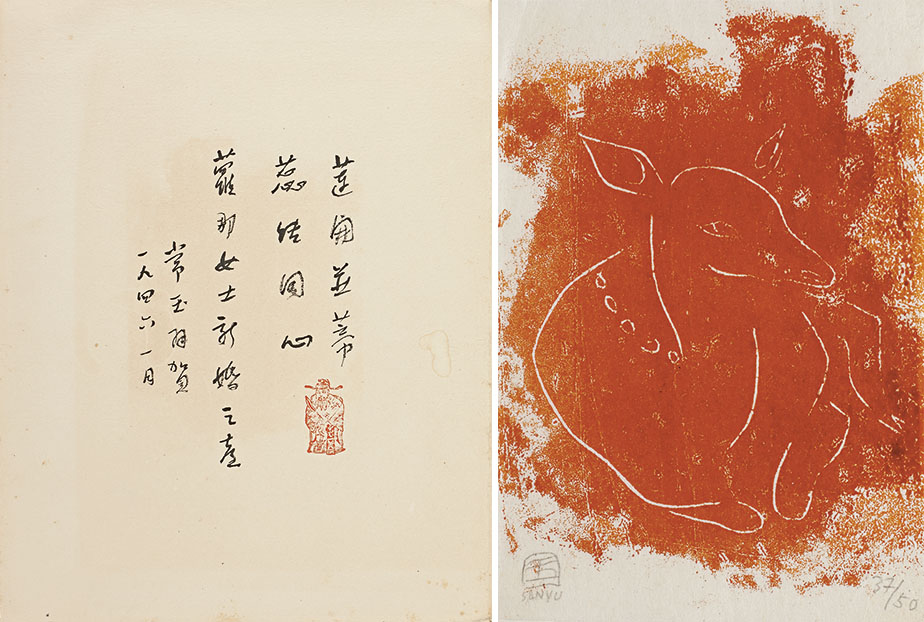 蓮開並蒂
蕊結同心
蘿那女士新婚之喜
常玉拜賀
一九四六 一月
SANYU
37/50